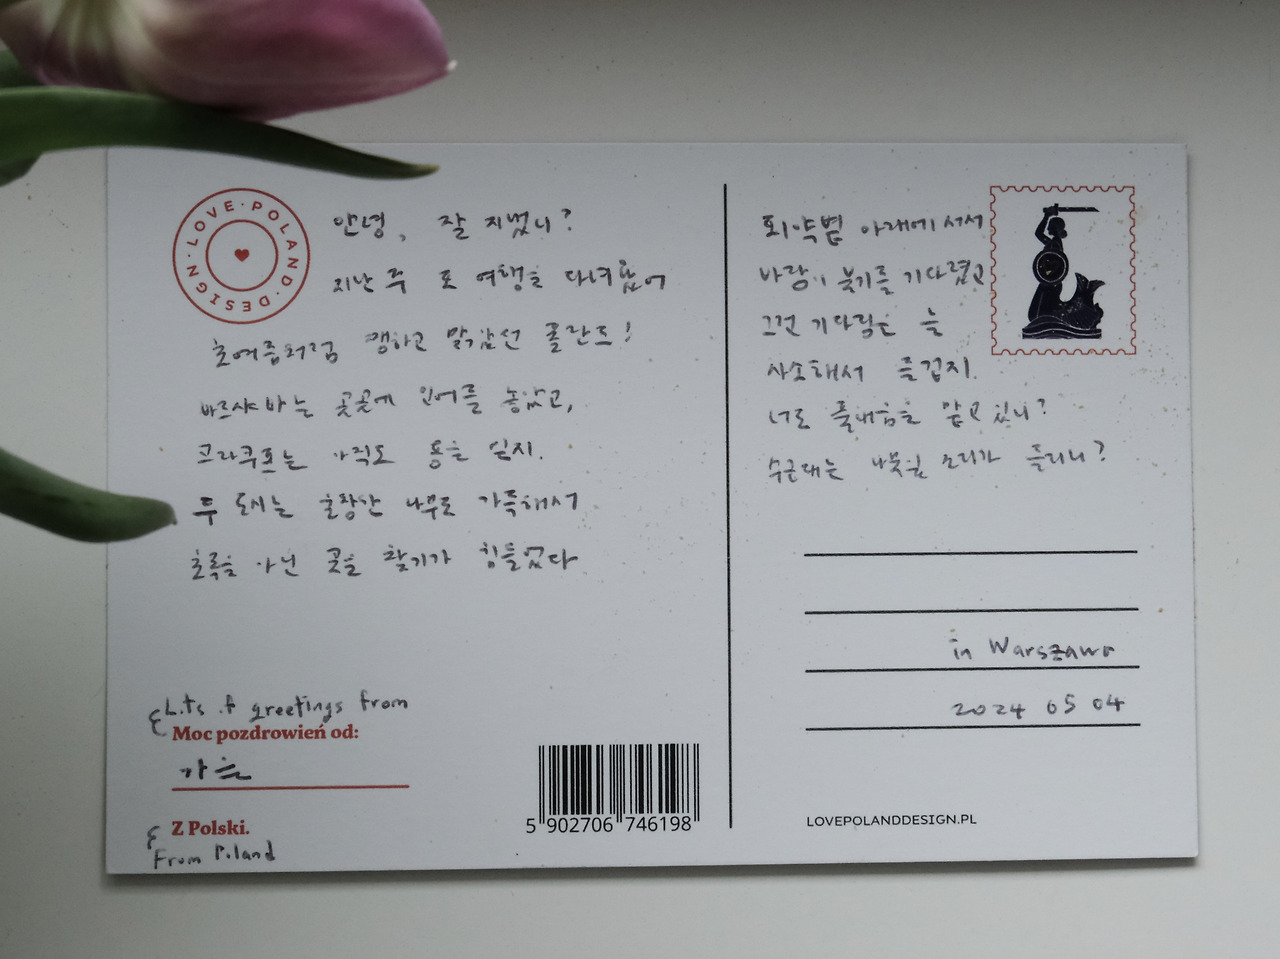 LOVE·POLAND·DESIGN·
안녕, 잘 지냈니?
지난 주 또 여행을 다녀왔어
초여름처럼 쨍하고 맑았던 폴란드!
바르샤바는 곳곳에 인어를 놓았고,
크라쿠프는 아직도 용을 믿지.
두 도시는 울창한 나무로 가득해서
초록을 아닌 곳을 찾기가 힘들었다
Lots of greetings from
Moc pozdrowień od:
가을
Z Polski.
From Poland
5 902706 746198
뙤약볕 아래에 서서
바람이 불기를 기다렸고
그런 기다림은 늘
사소해서 즐겁지.
너도 풀내음을 맡고 있니?
수근대는 나뭇잎 소리가 들리니?
in Warszawa
2024 05 04
LOVEPOLANDDESIGN.PL